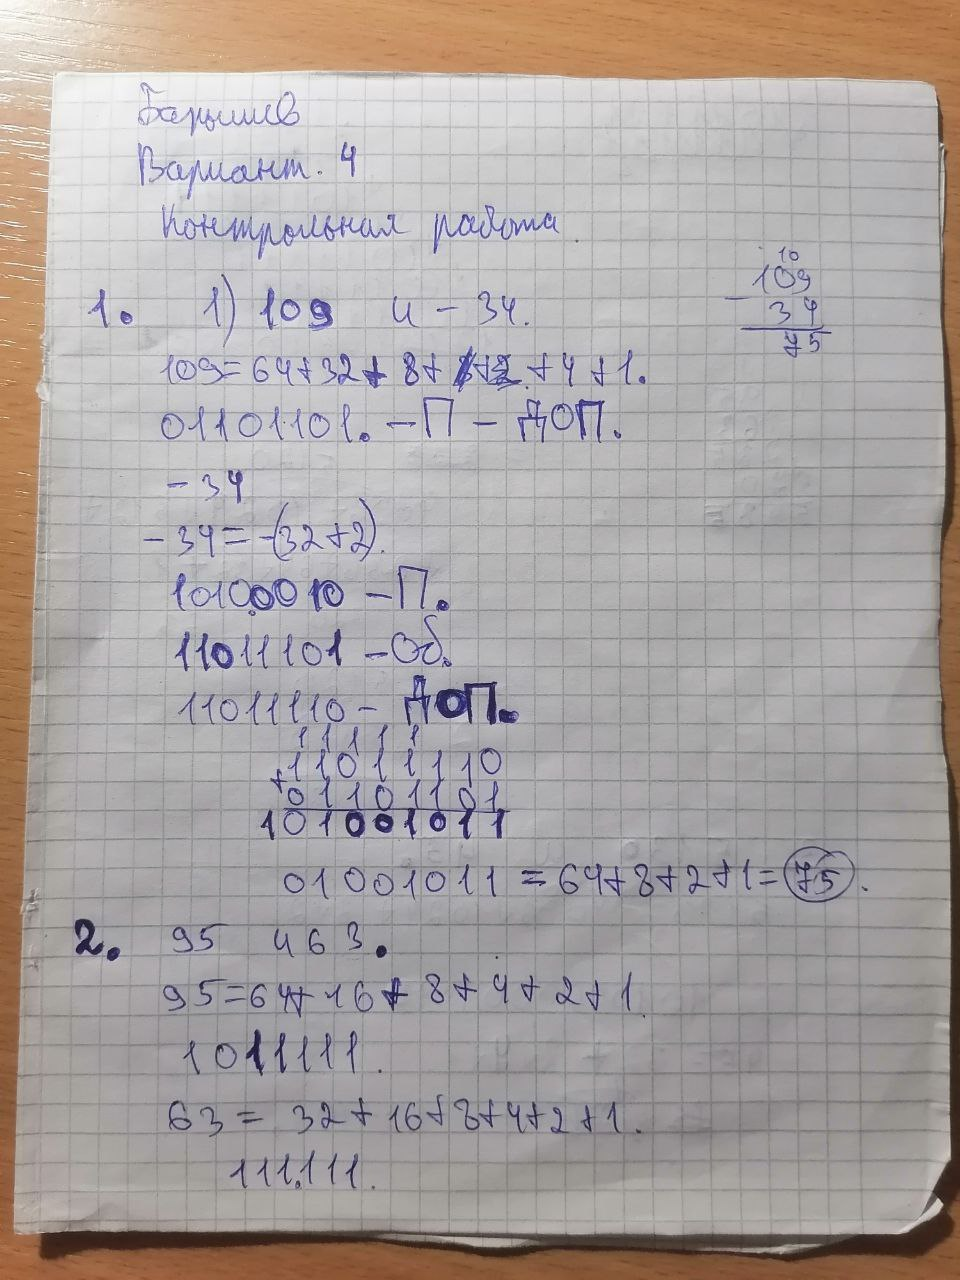 Вариант. 4
Контрольная работа.
1. 1) 109 и - 34.
10
109
- 34
75
109=64+32+8+4+1.
01101101. - П - ДОП.
- 34
- 34 = -(32+2).
10100010 - П.
11011101 - Об.
11011110 - ДОП.
1 1 1 1 1
11011110
+
01101101
101001011
01001011 = 64+8+2+1 = 75.
2. 95 и 63.
95=64+16+8+4+2+1.
1011111.
63 = 32+16+8+4+2+1.
111.111.